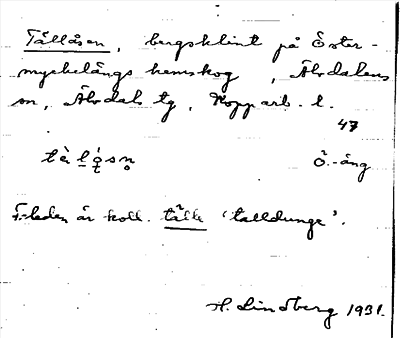 Tällåsen, bergsklint på Öster-
myckelängs hemskog, Älvdalens
sn, Älvdals tg, Kopparb. l.
47
tè̀ lǫ́sn̥ Ö.-äng
F-leden är koll. tälle 'talldunge'.
H. Lindberg 1931.